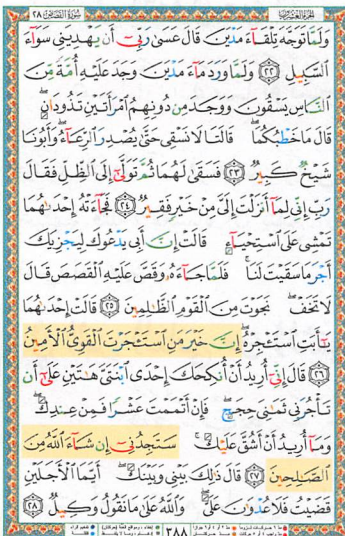 الجزء العشرون سورة القصص ٢٨
وَلَمَّا تَوَجَّهَ تِلْقَآءَ مَدْيَنَ قَالَ عَسَىٰ رَبِّىٓ أَن يَهْدِيَنِى سَوَآءَ
ٱلسَّبِيلِ ٢٢ وَلَمَّا وَرَدَ مَآءَ مَدْيَنَ وَجَدَ عَلَيْهِ أُمَّةً مِّنَ
ٱلنَّاسِ يَسْقُونَ وَوَجَدَ مِن دُونِهِمُ ٱمْرَأَتَيْنِ تَذُودَانِ
قَالَ مَا خَطْبُكُمَا قَالَتَا لَا نَسْقِى حَتَّىٰ يُصْدِرَ ٱلرِّعَآءُ وَأَبُونَا
شَيْخٌ كَبِيرٌ ٢٣ فَسَقَىٰ لَهُمَا ثُمَّ تَوَلَّىٰٓ إِلَى ٱلظِّلِّ فَقَالَ
رَبِّ إِنِّى لِمَآ أَنزَلْتَ إِلَىَّ مِنْ خَيْرٍ فَقِيرٌ ٢٤ فَجَآءَتْهُ إِحْدَىٰهُمَا
تَمْشِى عَلَى ٱسْتِحْيَآءٍ قَالَتْ إِنَّ أَبِى يَدْعُوكَ لِيَجْزِيَكَ
أَجْرَ مَا سَقَيْتَ لَنَا فَلَمَّا جَآءَهُۥ وَقَصَّ عَلَيْهِ ٱلْقَصَصَ قَالَ
لَا تَخَفْ نَجَوْتَ مِنَ ٱلْقَوْمِ ٱلظَّٰلِمِينَ ٢٥ قَالَتْ إِحْدَىٰهُمَا
يَٰٓأَبَتِ ٱسْتَـْٔجِرْهُ إِنَّ خَيْرَ مَنِ ٱسْتَـْٔجَرْتَ ٱلْقَوِىُّ ٱلْأَمِينُ
٢٦ قَالَ إِنِّىٓ أُرِيدُ أَنْ أُنكِحَكَ إِحْدَى ٱبْنَتَىَّ هَٰتَيْنِ عَلَىٰٓ أَن
تَأْجُرَنِى ثَمَٰنِىَ حِجَجٍ فَإِنْ أَتْمَمْتَ عَشْرًا فَمِنْ عِندِكَ
وَمَآ أُرِيدُ أَنْ أَشُقَّ عَلَيْكَ سَتَجِدُنِىٓ إِن شَآءَ ٱللَّهُ مِنَ
ٱلصَّٰلِحِينَ ٢٧ قَالَ ذَٰلِكَ بَيْنِى وَبَيْنَكَ أَيَّمَا ٱلْأَجَلَيْنِ
قَضَيْتُ فَلَا عُدْوَٰنَ عَلَىَّ وَٱللَّهُ عَلَىٰ مَا نَقُولُ وَكِيلٌ ٢٨
٣٨٨